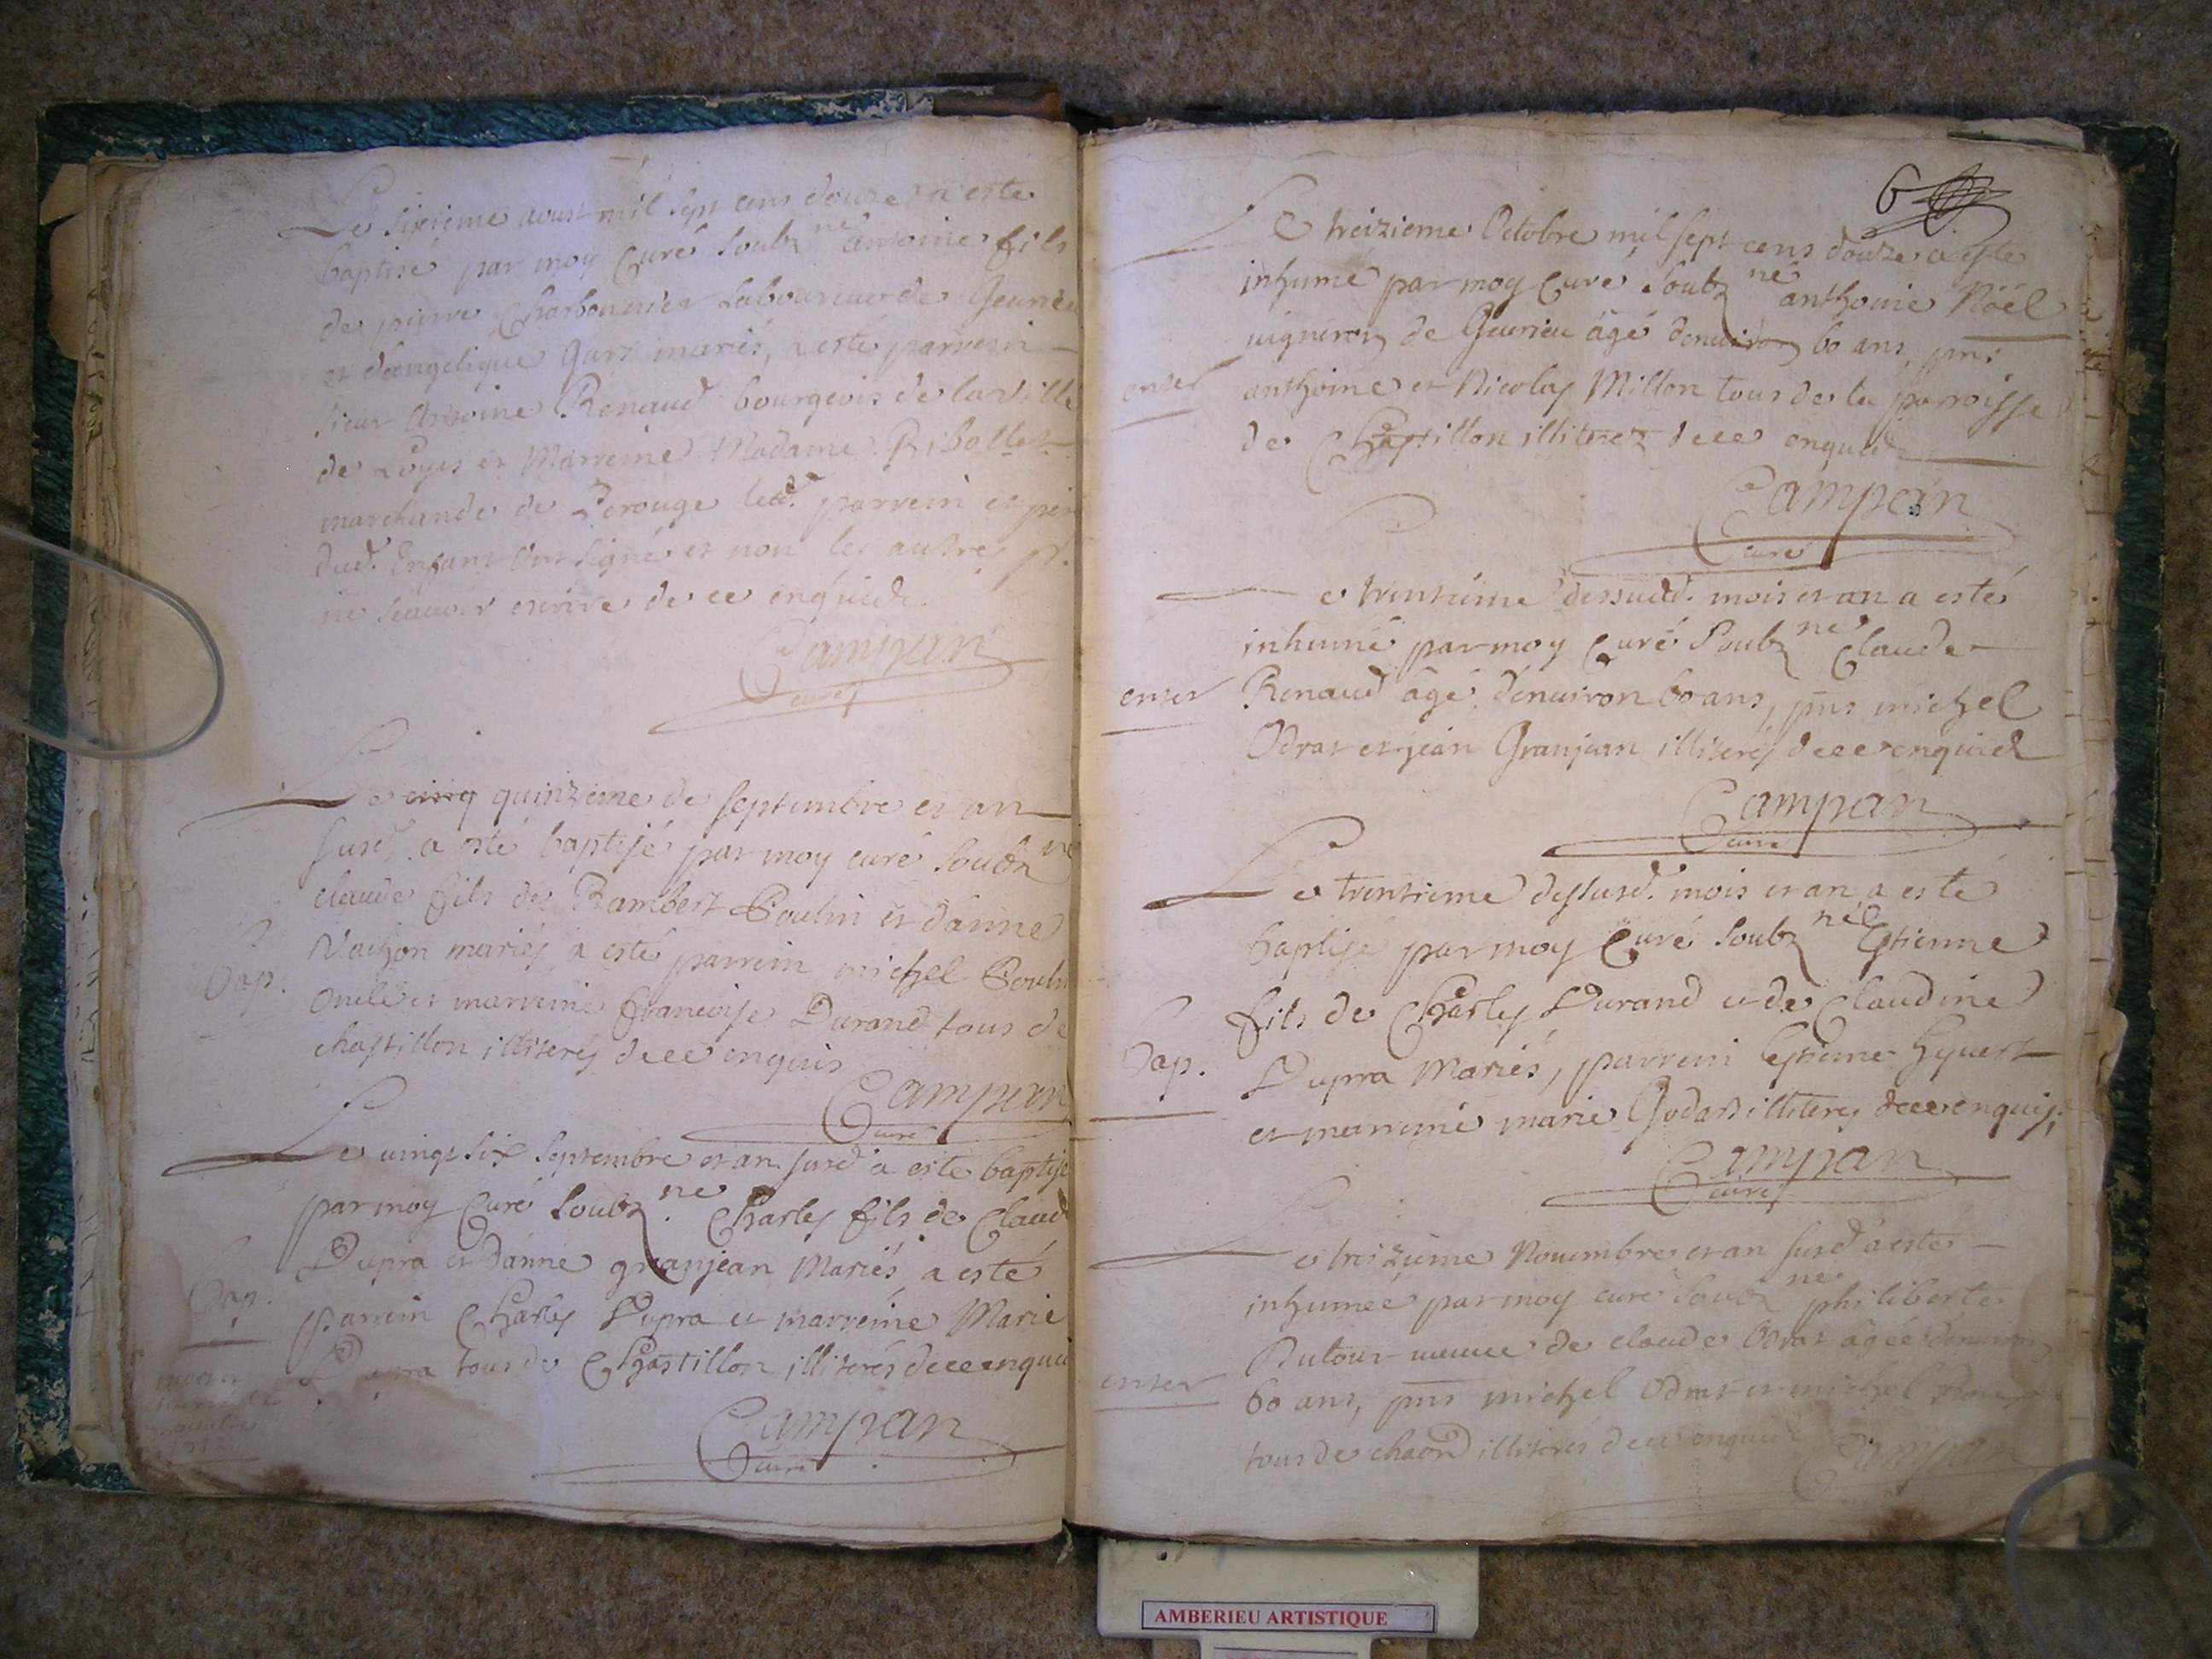 Le sixieme aoust mil sept cens douze a este
baptisé par moy Curé Soubz né antoine fils
de pierre Charbonnier Laboureur de Geurieu
et dangelique Gars mariés, a esté parrein
sieur Antoine Renaud bourgeois de la ville
de Loyes et Marreine Madame Ribollet
marchande de Perouge led. parrein et pere
dud. Enfant Ont Signé et non les autres pr.
ne scauoir escrire de ce enquis
Campan
curé
Le cinq quinzieme de septembre et an
susd. a esté baptisé par moy curé Soubz né
claude fils de Rambert Poulin et danne
Vachon mariés, a esté parrein michel Poulin
Oncle et marreine francoise Durand tous de
chastillon illiterés de ce enquis
Bap.
Campan
Curé
Le uingt six Septembre et an susd a este baptisé
par moy Curé Soubz né Charles fils de Claude
Dupra et danne granjean Mariés a esté
parrein Charles Dupra et marreine Marie
Dupra tous de Chastillon illiterés de ce enquis
Bap.
Campan
Curé
6
Le treizieme Octobre mil sept cens douze a esté
inhumé par moy Curé Soubz né anthoine Nöel
uigneron de Geurieu âgé denuiron 60 ans, pns
anthoine et Nicolas Millon tous de la parroisse
de Chastillon illiterez de ce enquis
enter
Campan
Curé
Le trentieme dessusd. mois et an a esté
inhumé par moy Curé Soubz né Claude
Renaud âgé denuiron 60 ans, pns michel
Odrat et jean Granjean illiterés de ce enquis
enter
Campan
Curé
Le trentieme dessusd. mois et an a esté
baptisé par moy Curé Soubz né Estienne
fils de Charles Durand et de Claudine
Dupra Mariés, parrein Estienne
et marreine marie Godard illiterés de ce enquis,
Bap.
Campan
Curé
Le treizieme Nouembre et an susd a esté
inhumeé par moy curé Soubz né philiberte
Dutour ueuue de claude Odrat âgée denuiron
60 ans, pns michel Odrat et michel
tous de chaon illiterés de ce enquis
enter
Campan
AMBERIEU ARTISTIQUE